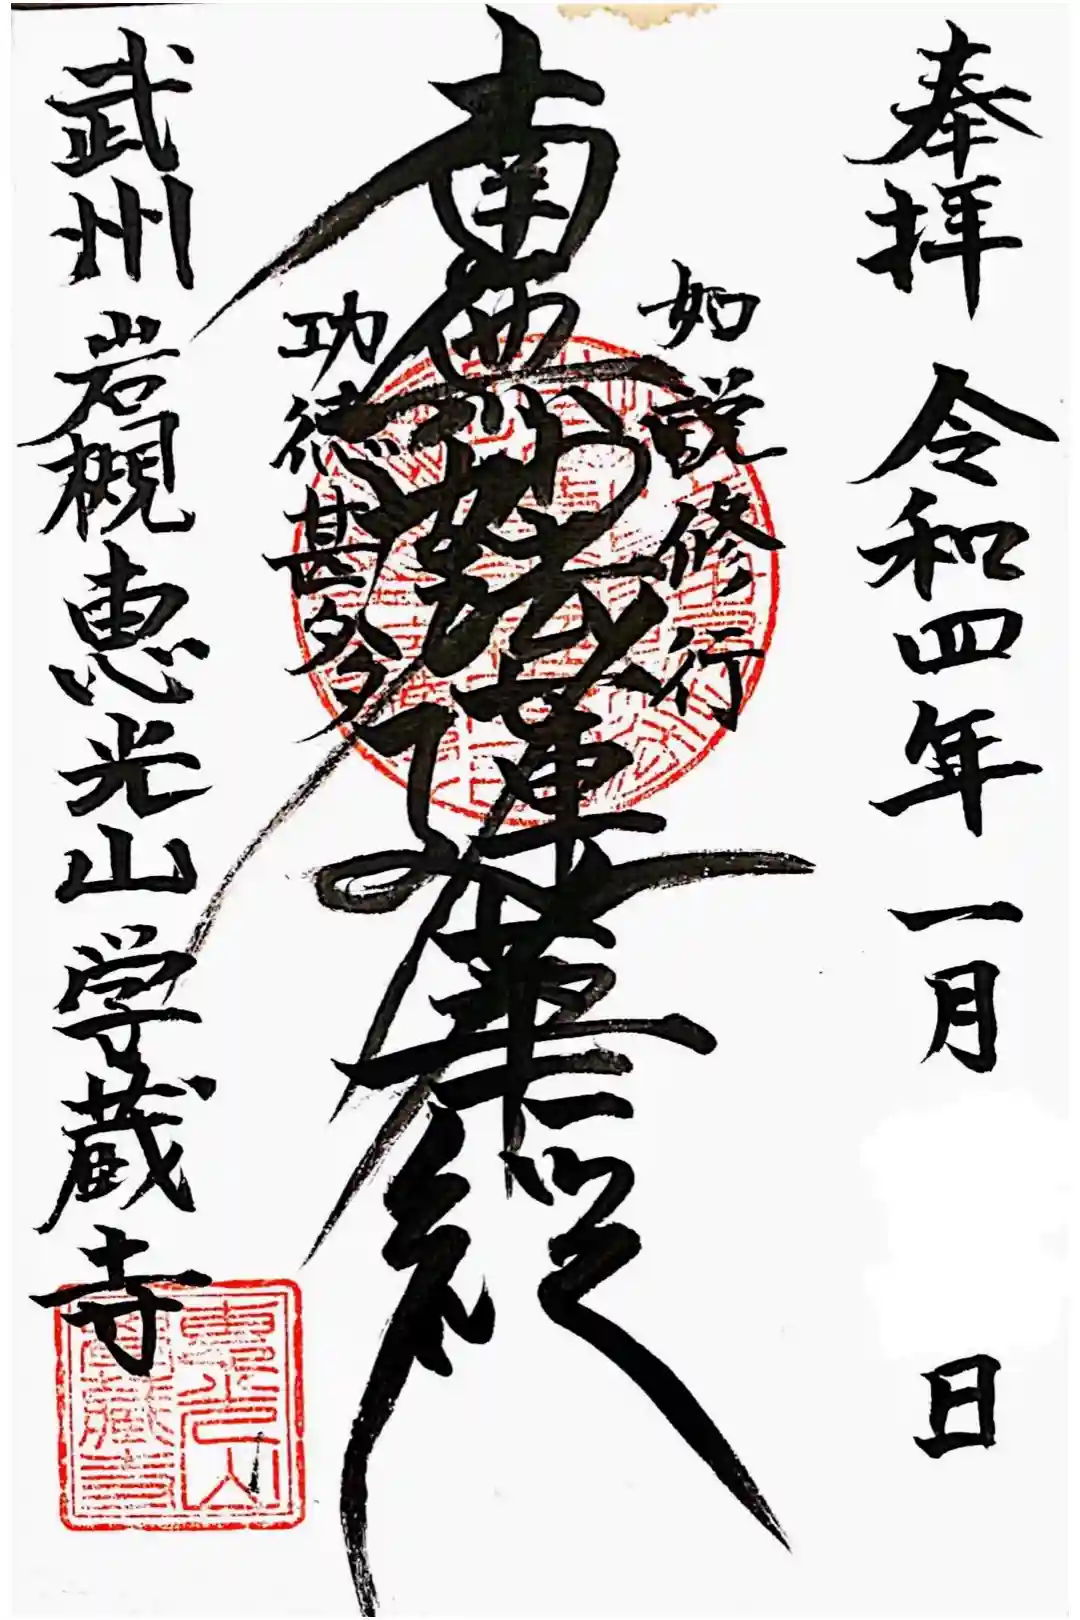 奉拝 令和四年 一月 日
如説修行
南無妙法蓮華経
功徳甚多
武州 岩槻 恵光山 学蔵寺
恵光山
学蔵寺